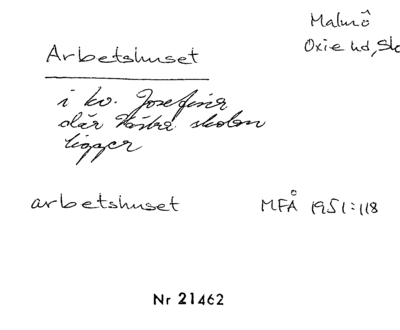 Malmö
Arbetshuset
Oxie hd, Sk
i kv. Josefina
där Västra skolan
ligger
arbetshuset
MFÅ 1951:118
Nr 21462